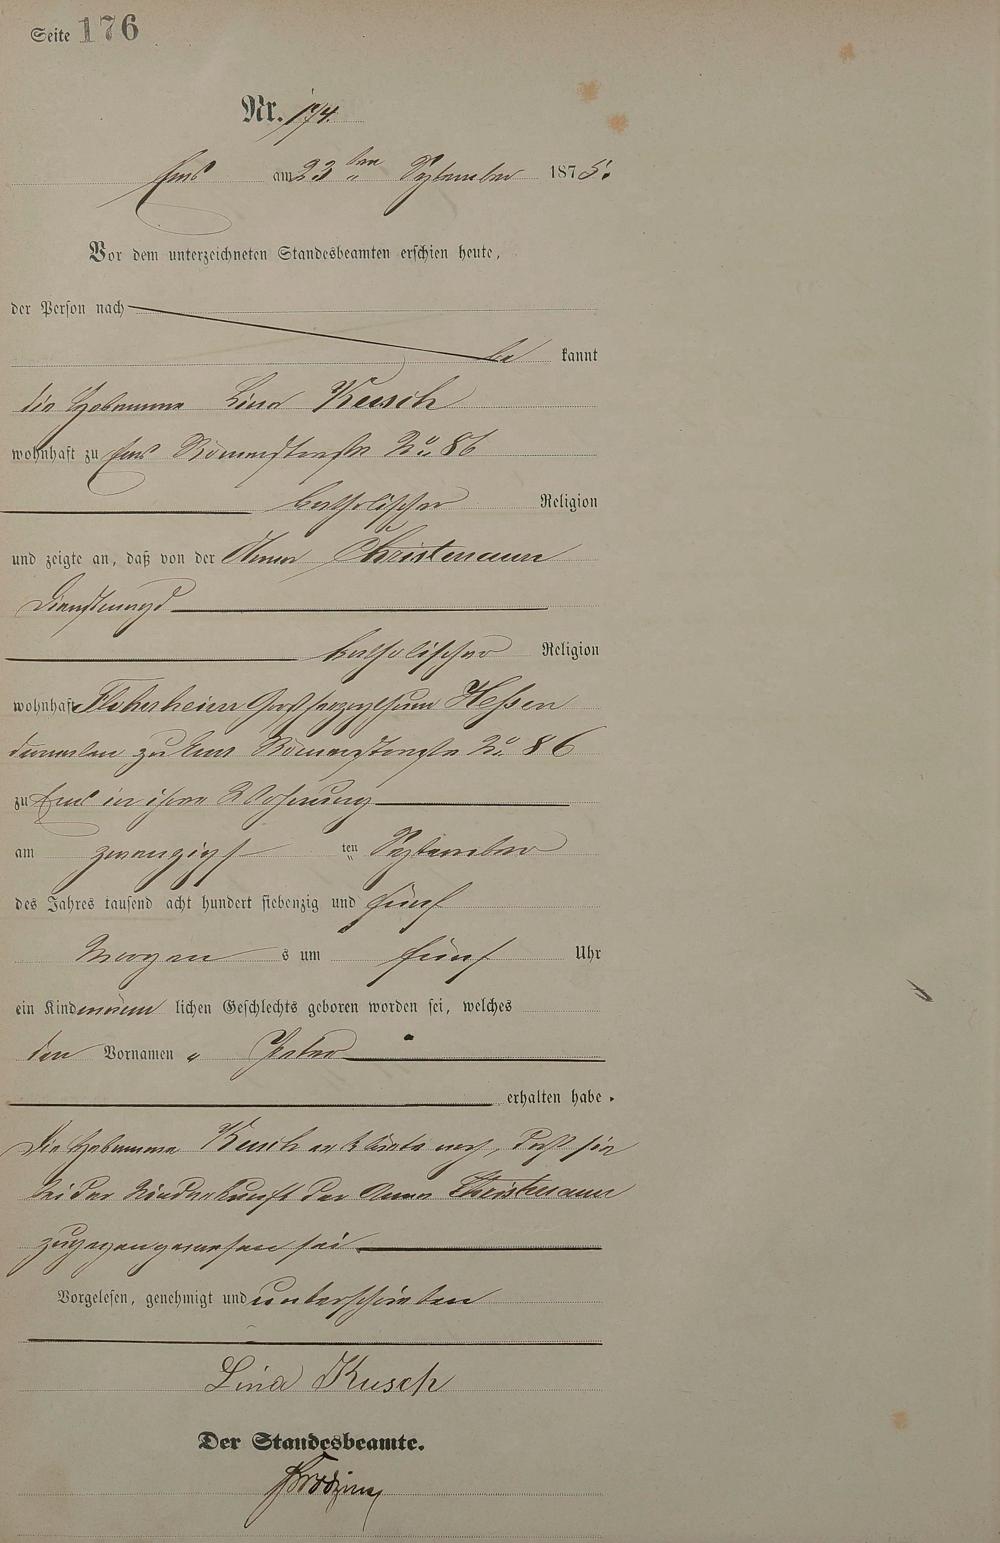 Seite 176
Nr. 174.
Ems am 23 ten September 1875.
Vor dem unterzeichneten Standesbeamten erschien heute,
der Person nach
be kannt
die Hebamme Lina Kusch
wohnhaft zu Ems Römerstraße No 86
katholischer Religion
und zeigte an, daß von der Anna Christmann
Dienstmagd
katholischer Religion
wohnhaft Großherzogthum Hessen
zu Ems Römerstraße No 86
zu Ems in ihrer Wohnung
am zwanzigst ten September
des Jahres tausend acht hundert siebenzig und fünf
Morgen s um fünf Uhr
ein Kind männ lichen Geschlechts geboren worden sei, welches
den Vornamen Peter
erhalten habe.
Die Hebamme Kusch erklärte noch, daß sie
bei der Niederkunft der Anna Christmann
zugegen gewesen sei
Vorgelesen, genehmigt und unterschrieben
Lina Kusch
Der Standesbeamte.